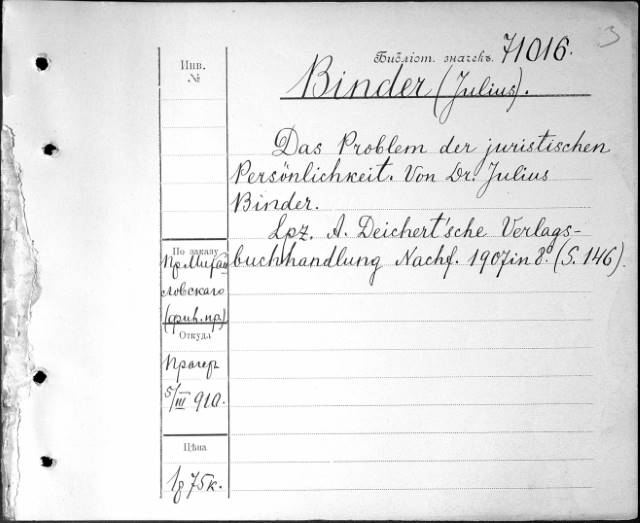 3
Библіот. значекъ. 71016.
Инв.
№
Binder (Julius).
Das Problem der juristischen
Persönlichkeit. Von Dr. Julius
Binder.
Lpz. A. Deichert'sche Verlags-
buchhandlung Nachf. 1907 in 8º. (S. 146).
По заказу
Пр. Михай
ловскаго
Откуда
Прагеръ
5/III 910.
Цѣна
75 к.